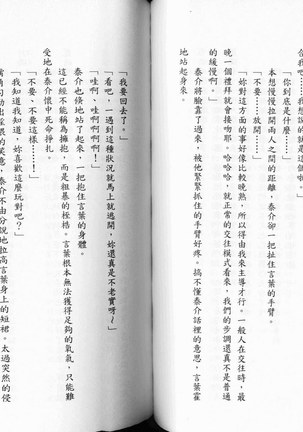 「你到底是什麼……」
本想慢慢拉開兩人之間的距離，泰介卻一把扯住言葉的手臂。
「不要……放開……」
「妳對這方面的事好像比較晚熟，所以得由我來主導才行。一般人在交往時，最
晚一個禮拜就會接吻耶。哈哈哈，就正常的交往模式看來，我們的步調還真不是普通
的緩慢啊。」
泰介將臉靠了過來，被他緊緊抓住的手臂好疼。搞不懂泰介話裡的意思，言葉霍
地站起身來。
「我要回去了。」
「看吧，一遇到這種狀況就馬上就逃開，妳還真是不老實呀！」
「哇！哇啊啊啊！」
泰介也倏地站了起來，一把抱住言葉的身體。
這已經不能稱為擁抱，而是粗暴的桎梏。言葉根本無法獲得足夠的氧氣，只能難
受地在泰介懷中死命掙扎。
「不要、不要這樣……！」
「我知道我知道，妳喜歡這麼玩對吧？」
泰介不由分說地拉高言葉身上的短裙。太過突然的侵